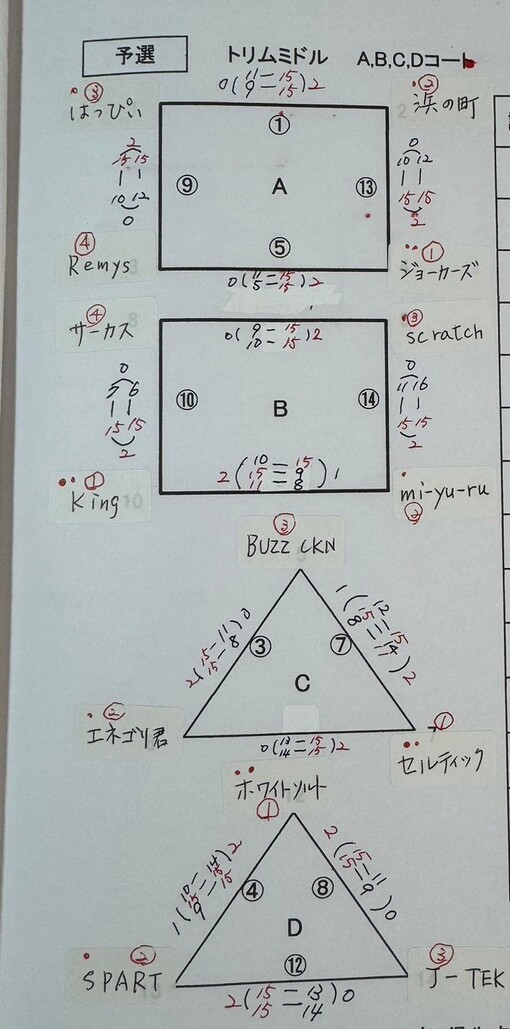 予選 トリムミドル A,B,C,Dコート
0(11-15 9-15)2
③ はっぴぃ
② 浜の町
①
2 15 15 10 12 0
⑨ A ⑬
0 10 12 15 15 2
⑤
④ Remys
① ジョーカーズ
0(11-15 5-15)2
④ サーカス
0(9-15 10-15)2
③ scratch
⑩ B ⑭
0 11 16 15 15 2
15 15 2
① King
2(10-15 15-9 11-8)1
mi-yu-ru ②
③ BUZZ CKN
2(15-11 15-8)0
③ ⑦
C
② エネゴリ君
0(13-15 14-15)2
① セルティック
ホワイトソルト ①
2(15-11 15-9)0
④ ⑧
D
⑫
② SPART
③ J-TEK
2(15-13 15-14)0